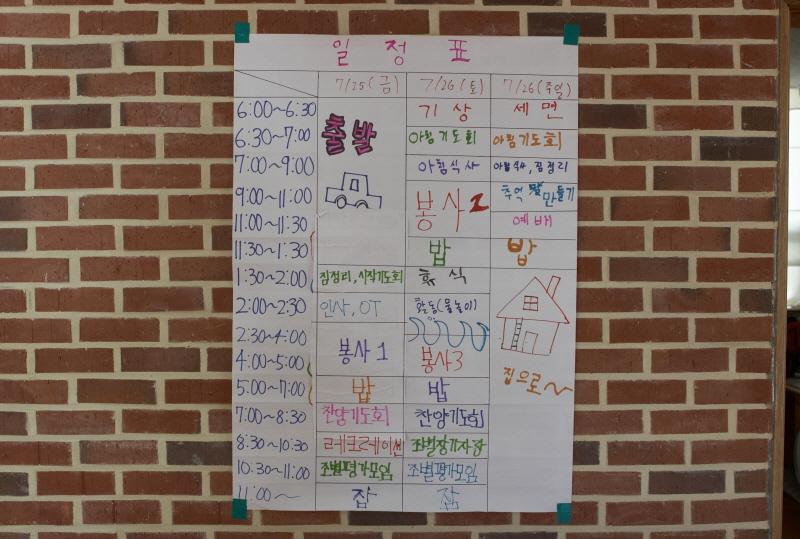 일 정 표
7/25(금) 7/26(토) 7/26(주일)
6:00~6:30 기상 세면
6:30~7:00 출발 아침기도회 아침기도회
7:00~9:00 아침식사 아침식사, 짐정리
9:00~11:00 봉사 2 추억 만들기
11:00~11:30 예배
11:30~1:30 밥 밥
1:30~2:00 짐정리, 시작기도회 휴식
2:00~2:30 인사, OT 활동(물놀이)
2:30~4:00 봉사 1
4:00~5:00 봉사3
집으로~
5:00~7:00 밥 밥
7:00~8:30 찬양기도회 찬양기도회
8:30~10:30 레크레이션 조별장기자랑
10:30~11:00 조별평가모임 조별평가모임
11:00~ 잠 잠